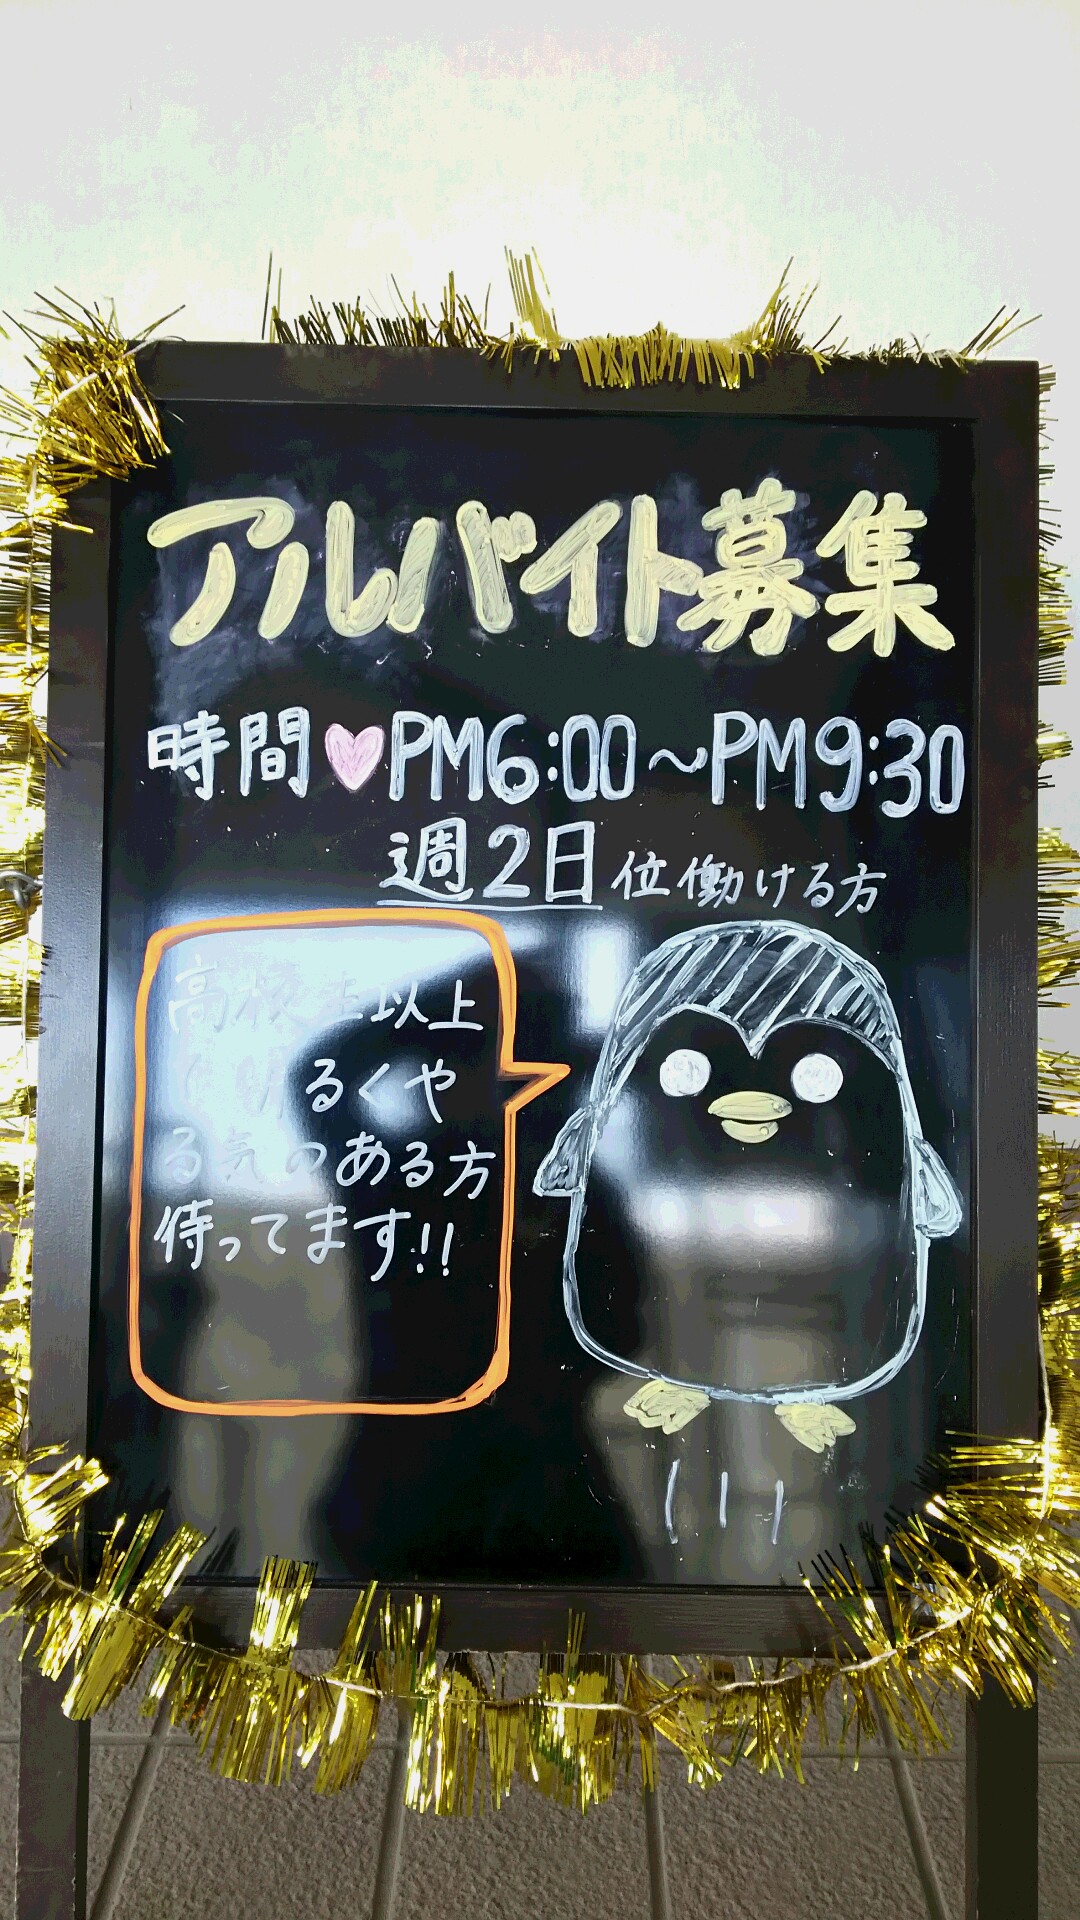 アルバイト募集
時間♥PM6:00～PM9:30
週2日位働ける方
高校生以上
で明るくや
る気のある方
待ってます!!